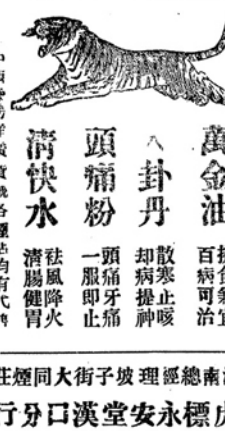 萬金油
百病可治
八卦丹
散寒止咳
却病提神
頭痛粉
頭痛牙痛
一服即止
清快水
祛風降火
清腸健胃
南總經理坡子街大同煙莊
虎標永安堂漢口分行